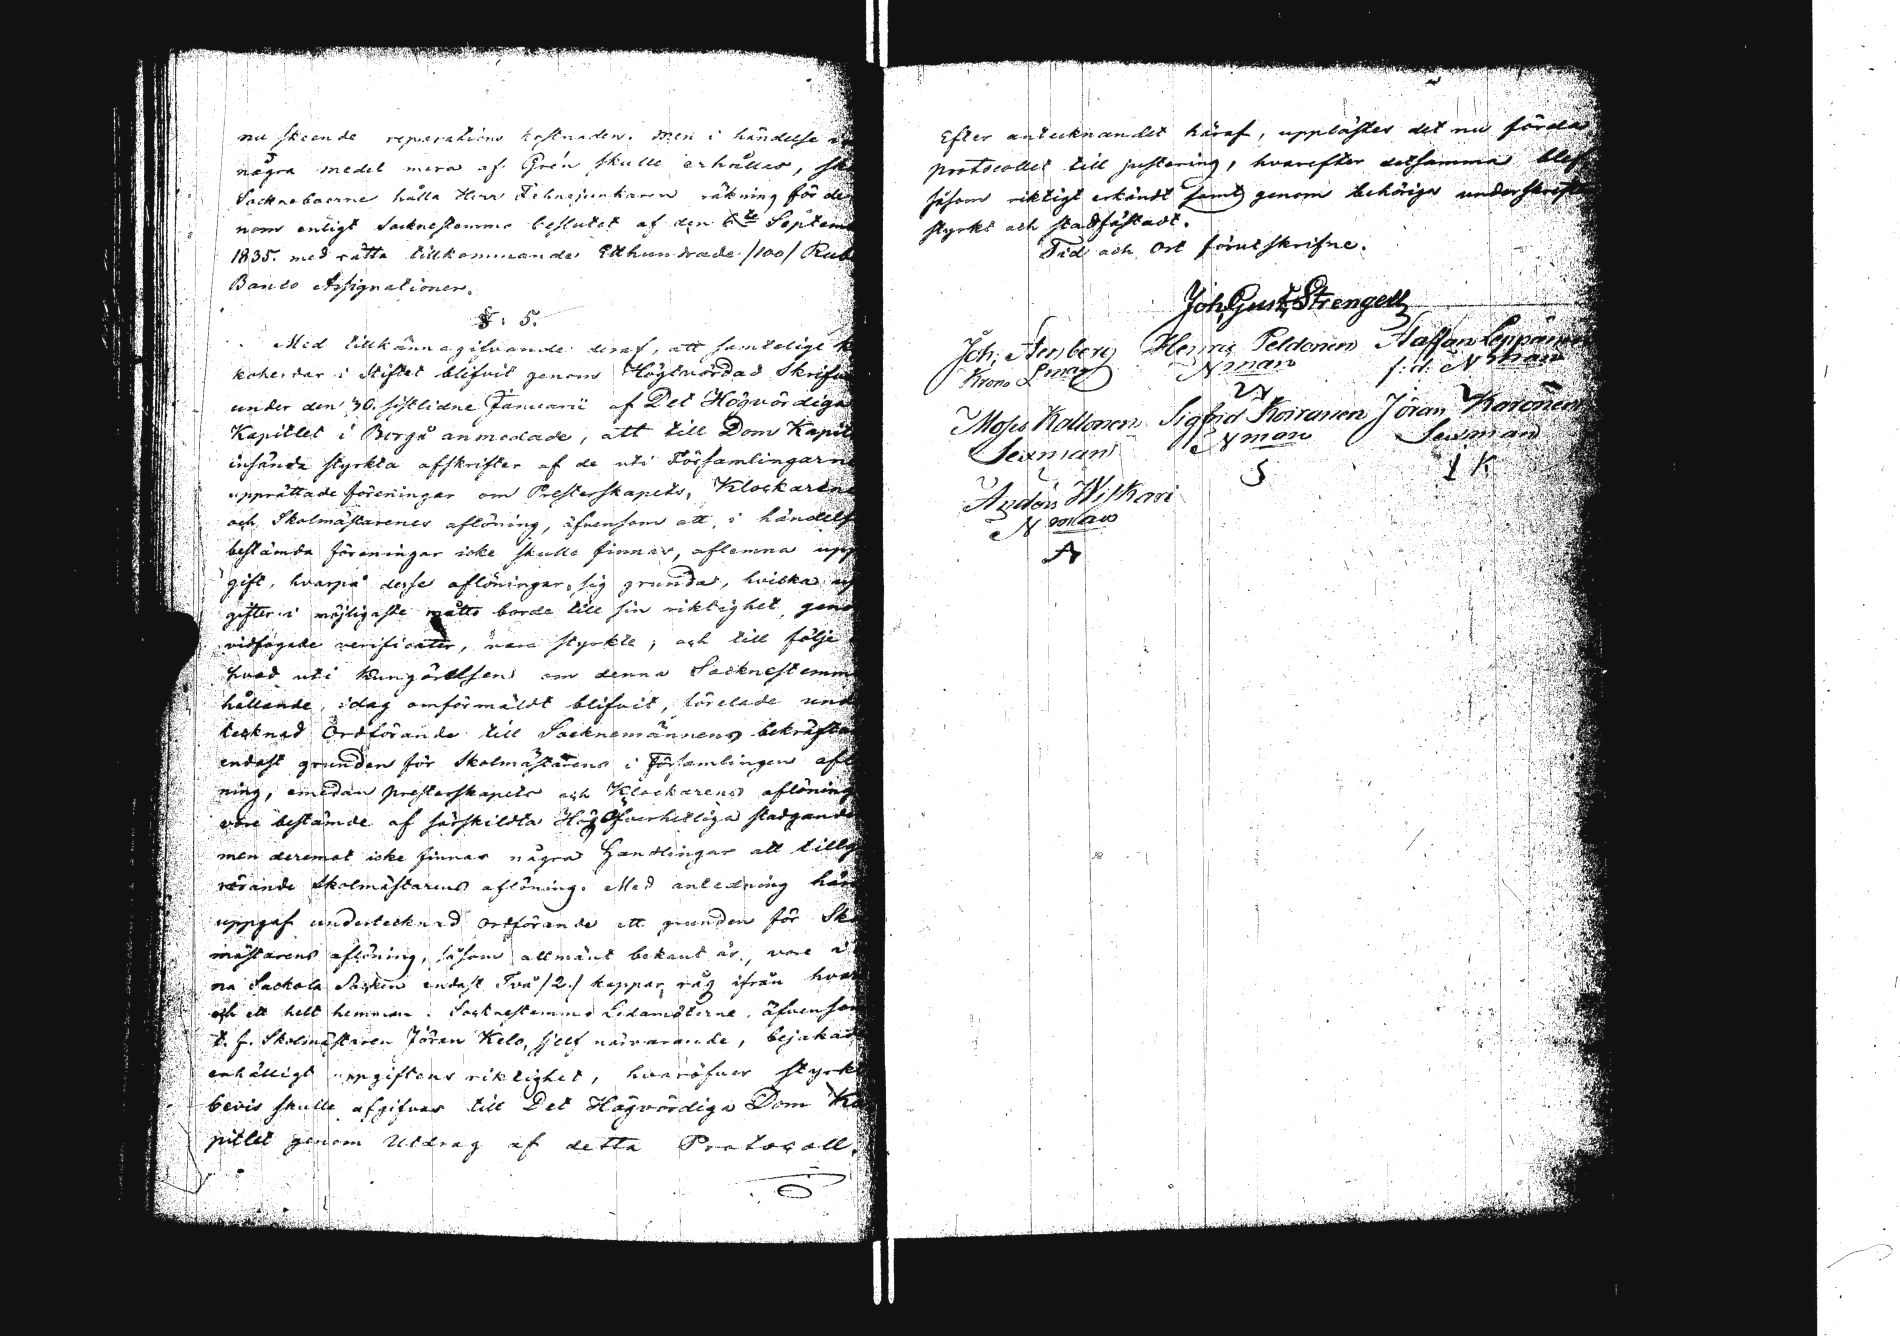 nu skeende reparations kostnaden. Men i händelse
några medel mera af Grén skulle erhålles,
Sockneboerne hålla Herr Fehnejunkaren räkning för
nom enligt Socknestemmo beslutet af den 6te Septem
1835. med rätta tillkommande Etthundrade /100/ Rub
Banco Assignationer.
§: 5.
Med tillkännagifvande deraf, att samtelige
koherdar i Stiftet blifvit genom Högtvördad Skrifv
under den 30. sistlidne Januarii af Det Högvördiga
Kapitlet i Borgå anmodade, att till Dom Kapit
insända styrkta afskrifter af de uti Församlingarne
upprättade föreningar om Presterskapets, Klockarens
och Skolmästarenes aflöning, äfvensom att, i händelse
bestämda föreningar icke skulle finnas, aflemna upp
gift, hvarpå desse aflöningar sig grunda, hvilka
gifter i möjligaste måtto borde till sin riktighet, geno
vidfogade verificater, vara styrkte; och till följe
hvad uti Kungörelsen om denna Socknestemm
hållande, idag omförmäldt blifvit, förelade und
tecknad Ordförande till Socknemännens bekräftan
endast grunden för Skolmästarens i Församlingen afl
ning, emedan presterskapets och Klockarens aflöning
vore bestämde af särskildta Hög Öfverhetliga stadgande
men deremot icke finnas några Handlingar att tillg
rörande Skolmästarens aflöning. Med anledning här
uppgaf undertecknad Ordförande att grunden för Sko
mästarens aflöning, såsom allmänt bekant är, vore i
na Sackola Socken endast Två /2./ kappar råg ifrån hvar
och ett helt hemman. Socknestemmo Ledamöterne, äfvensom
t. f. Skolmästaren Jöran Kelo, sjelf närvarande, bejakade
enhälligt uppgiftens riktighet, hvaröfver styrkt
bevis skulle afgifvas till Det Högvördiga Dom Ka
pitlet genom Utdrag af detta Protocoll.
Efter antecknandet häraf, upplästes det nu förda
protocollet till justering, hvarefter detsamma blef
såsom riktigt erkändt samt genom behöriga underskrift
styrkt och stadfästadt.
Tid och Ort förutskrifne.
Joh. Gust. Strengell
Joh: Arnberg Henric Peldonen Staffan Leppänen
Krono Lman Nman f: d: Nman
Moses Kaltonen Sigfrid Koiranen Jöran Karonen
Sexman Nman Sexman
Anders Wiskari
Nman